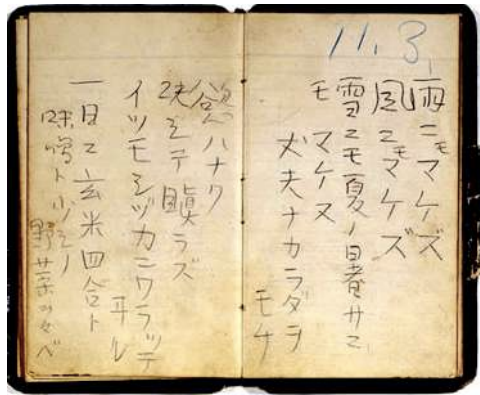 11.3.
雨ニモマケズ
風ニモマケズ
雪ニモ夏ノ暑サニ
モ マケヌ
丈夫ナカラダヲ
モチ
慾ハナク
決シテ瞋ラズ
イツモシヅカニワラッテ
ヰル
一日ニ玄米四合ト
味噌ト少シノ
野菜ヲタベ